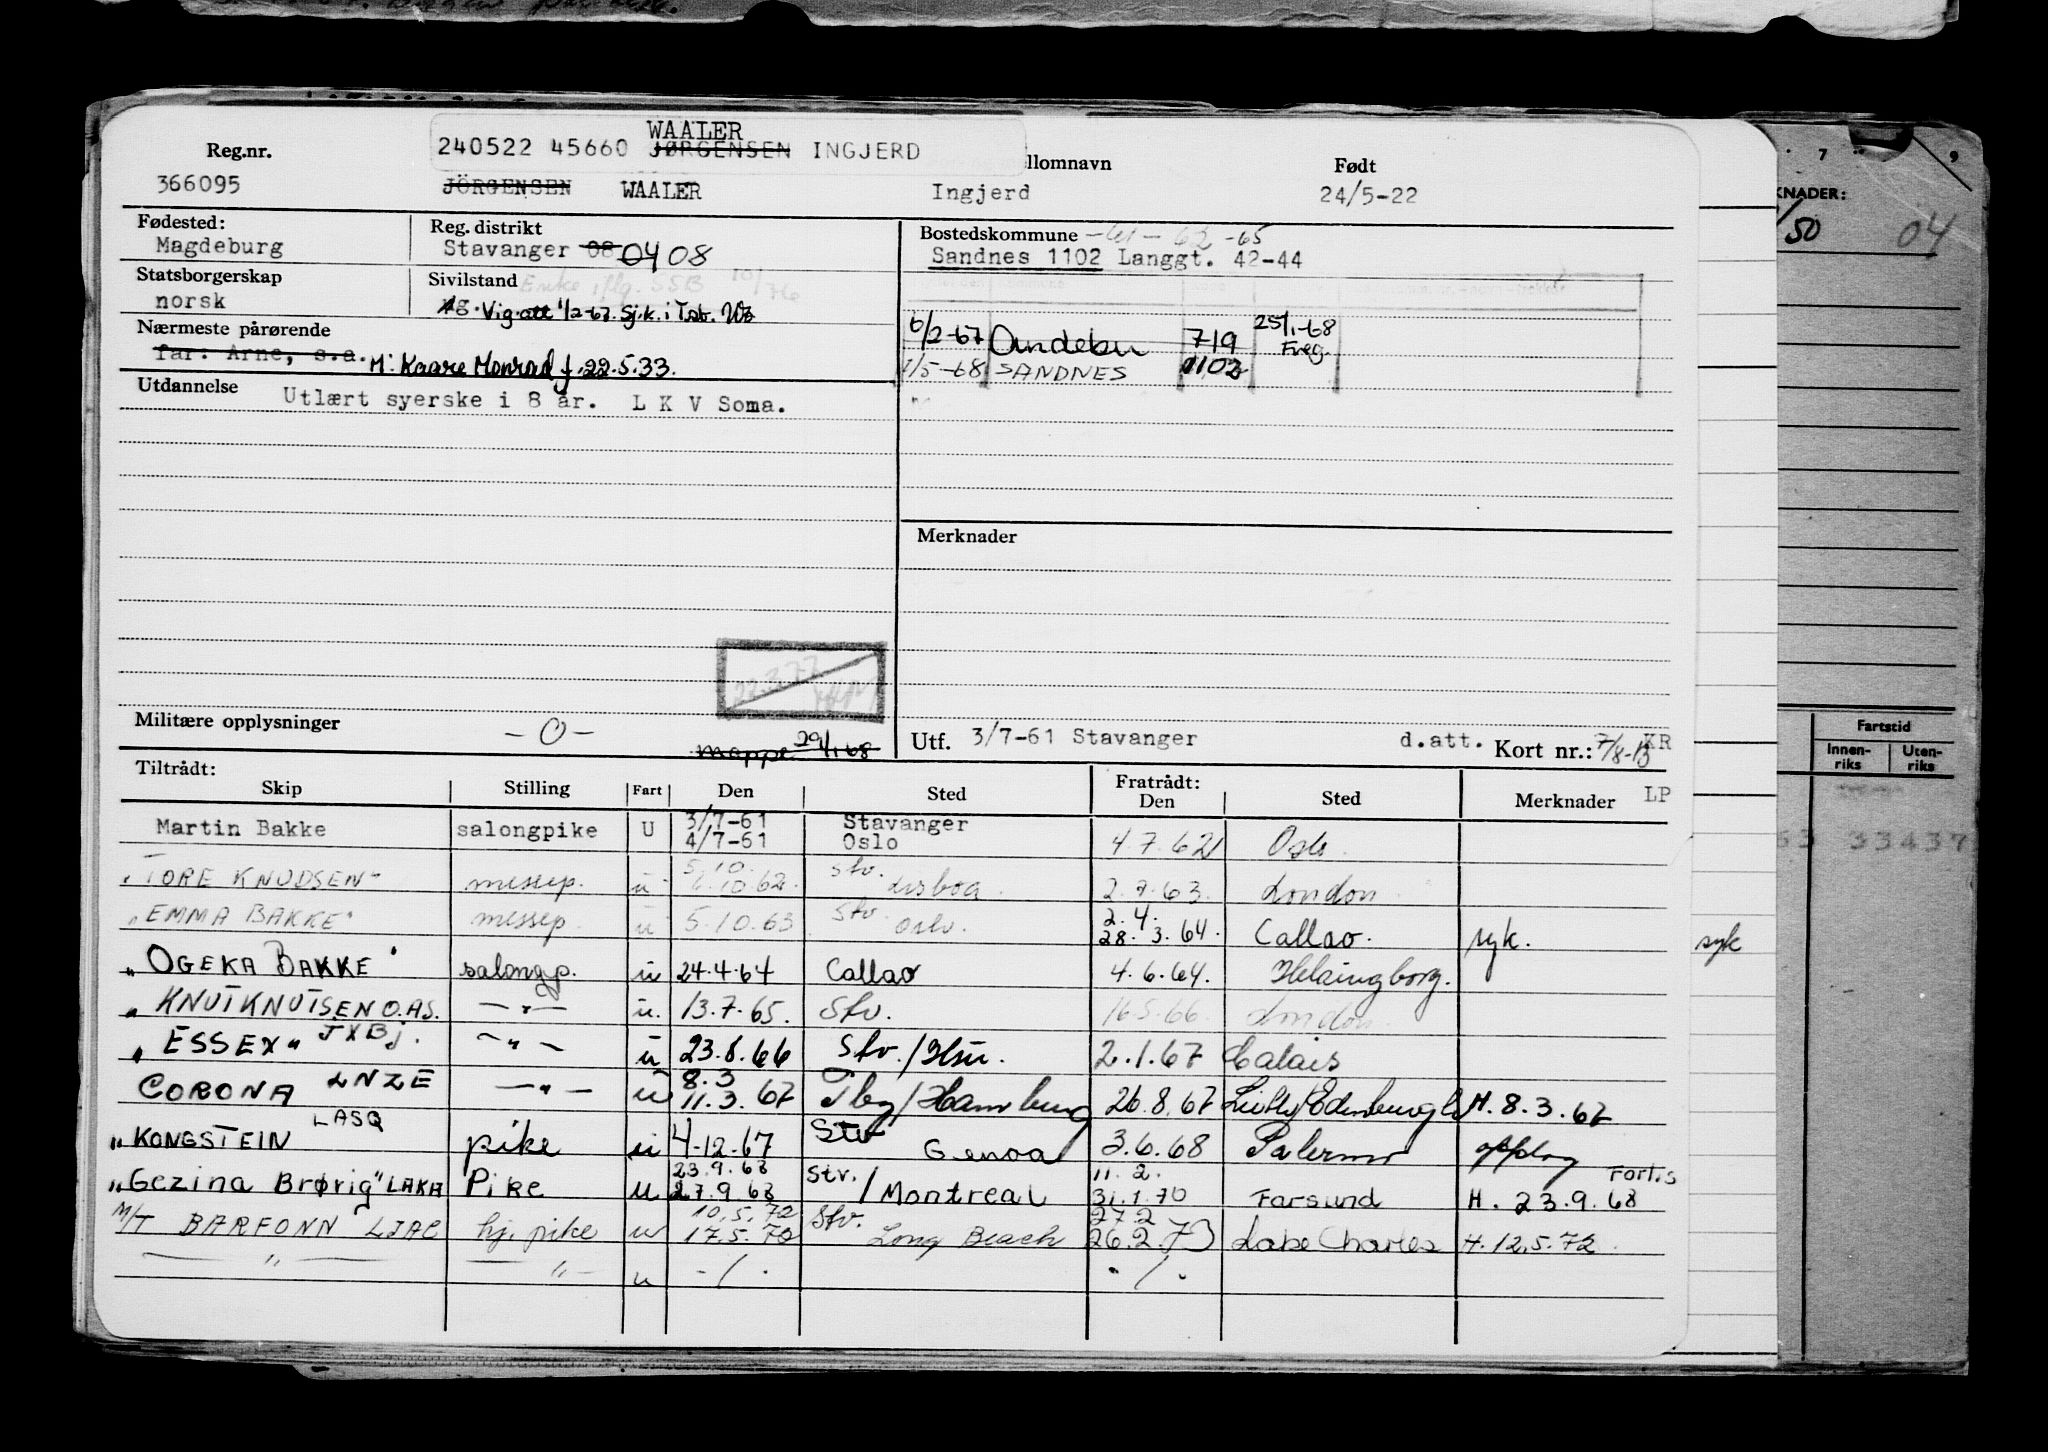 WAALER
240522 45660 JØRGENSEN INGJERD
Reg.nr. llomnavn Født
366095 JÖRGENSEN WAALER Ingjerd 24/5-22
Fødested: Reg. distrikt Bostedskommune -61-62-65
Magdeburg Stavanger 08 04 08 Sandnes 1102 Langgt. 42-44
Statsborgerskap Sivilstand Enke iflg. SSB 10/76
norsk ug. Vig.att 1/2-67. Sj.k. i Tsb.
Nærmeste pårørende 6/2-67 Andebu 719 25/1-68 Freg.
far: Arne, s.a. M: Kaare Monrad f. 22.5.33. 1/5-68 SANDNES 1102
Utdannelse Utlært syerske i 8 år. L K V Soma.
Merknader
22.3.77
Militære opplysninger -0- Mappe 29/1-68
Utf. 3/7-61 Stavanger d.att. Kort nr.: 7/8-13 KR
Tiltrådt: Fratrådt:
Skip Stilling Fart Den Sted Den Sted Merknader LP
Martin Bakke salongpike U 3/7-61 4/7-61 Stavanger Oslo 4.7.62 Oslo.
"TORE KNUDSEN" messep. u 5.10. 6.10.62. Stv. Lisboa. 2.7.63. London.
"EMMA BAKKE" messep. u 5.10.63 Stv. Oslo. 2.4. 28.3.64. Callao. syk. syk
"OGEKA BAKKE" salongp. u 24.4.64 Callao 4.6.64. Helsingborg.
"KNUT KNUTSEN O.AS. —"— u. 13.7.65. Stv. 16.5.66. London.
"ESSEX" JXBj. —"— u 23.8.66 Stv./Hsu. 2.1.67 Calais
CORONA LNZE —"— u 8.3 11.3.67 Tbg/Hamburg 26.8.67 Leith/Edinburgh H. 8.3.67
"KONGSTEIN LASQ pike u 4.12.67 Stv Genoa 3.6.68 Palermo opplag
"Gezina Brørig" LAKA Pike u 23.9.68 27.9.68 Stv./Montreal 11.2. 31.1.70 Farsund H. 23.9.68 Fortis
M/T BARFONN LJAC hj. pike u 10.5.72 17.5.72 Stv. Long Beach 27.2 26.2.73 Lake Charles H. 12.5.72.
—"— —"— u -/. ./.
7 9
KNADER:
/50 04
Fartstid
Innen-
riks
Uten-
riks
63 33437